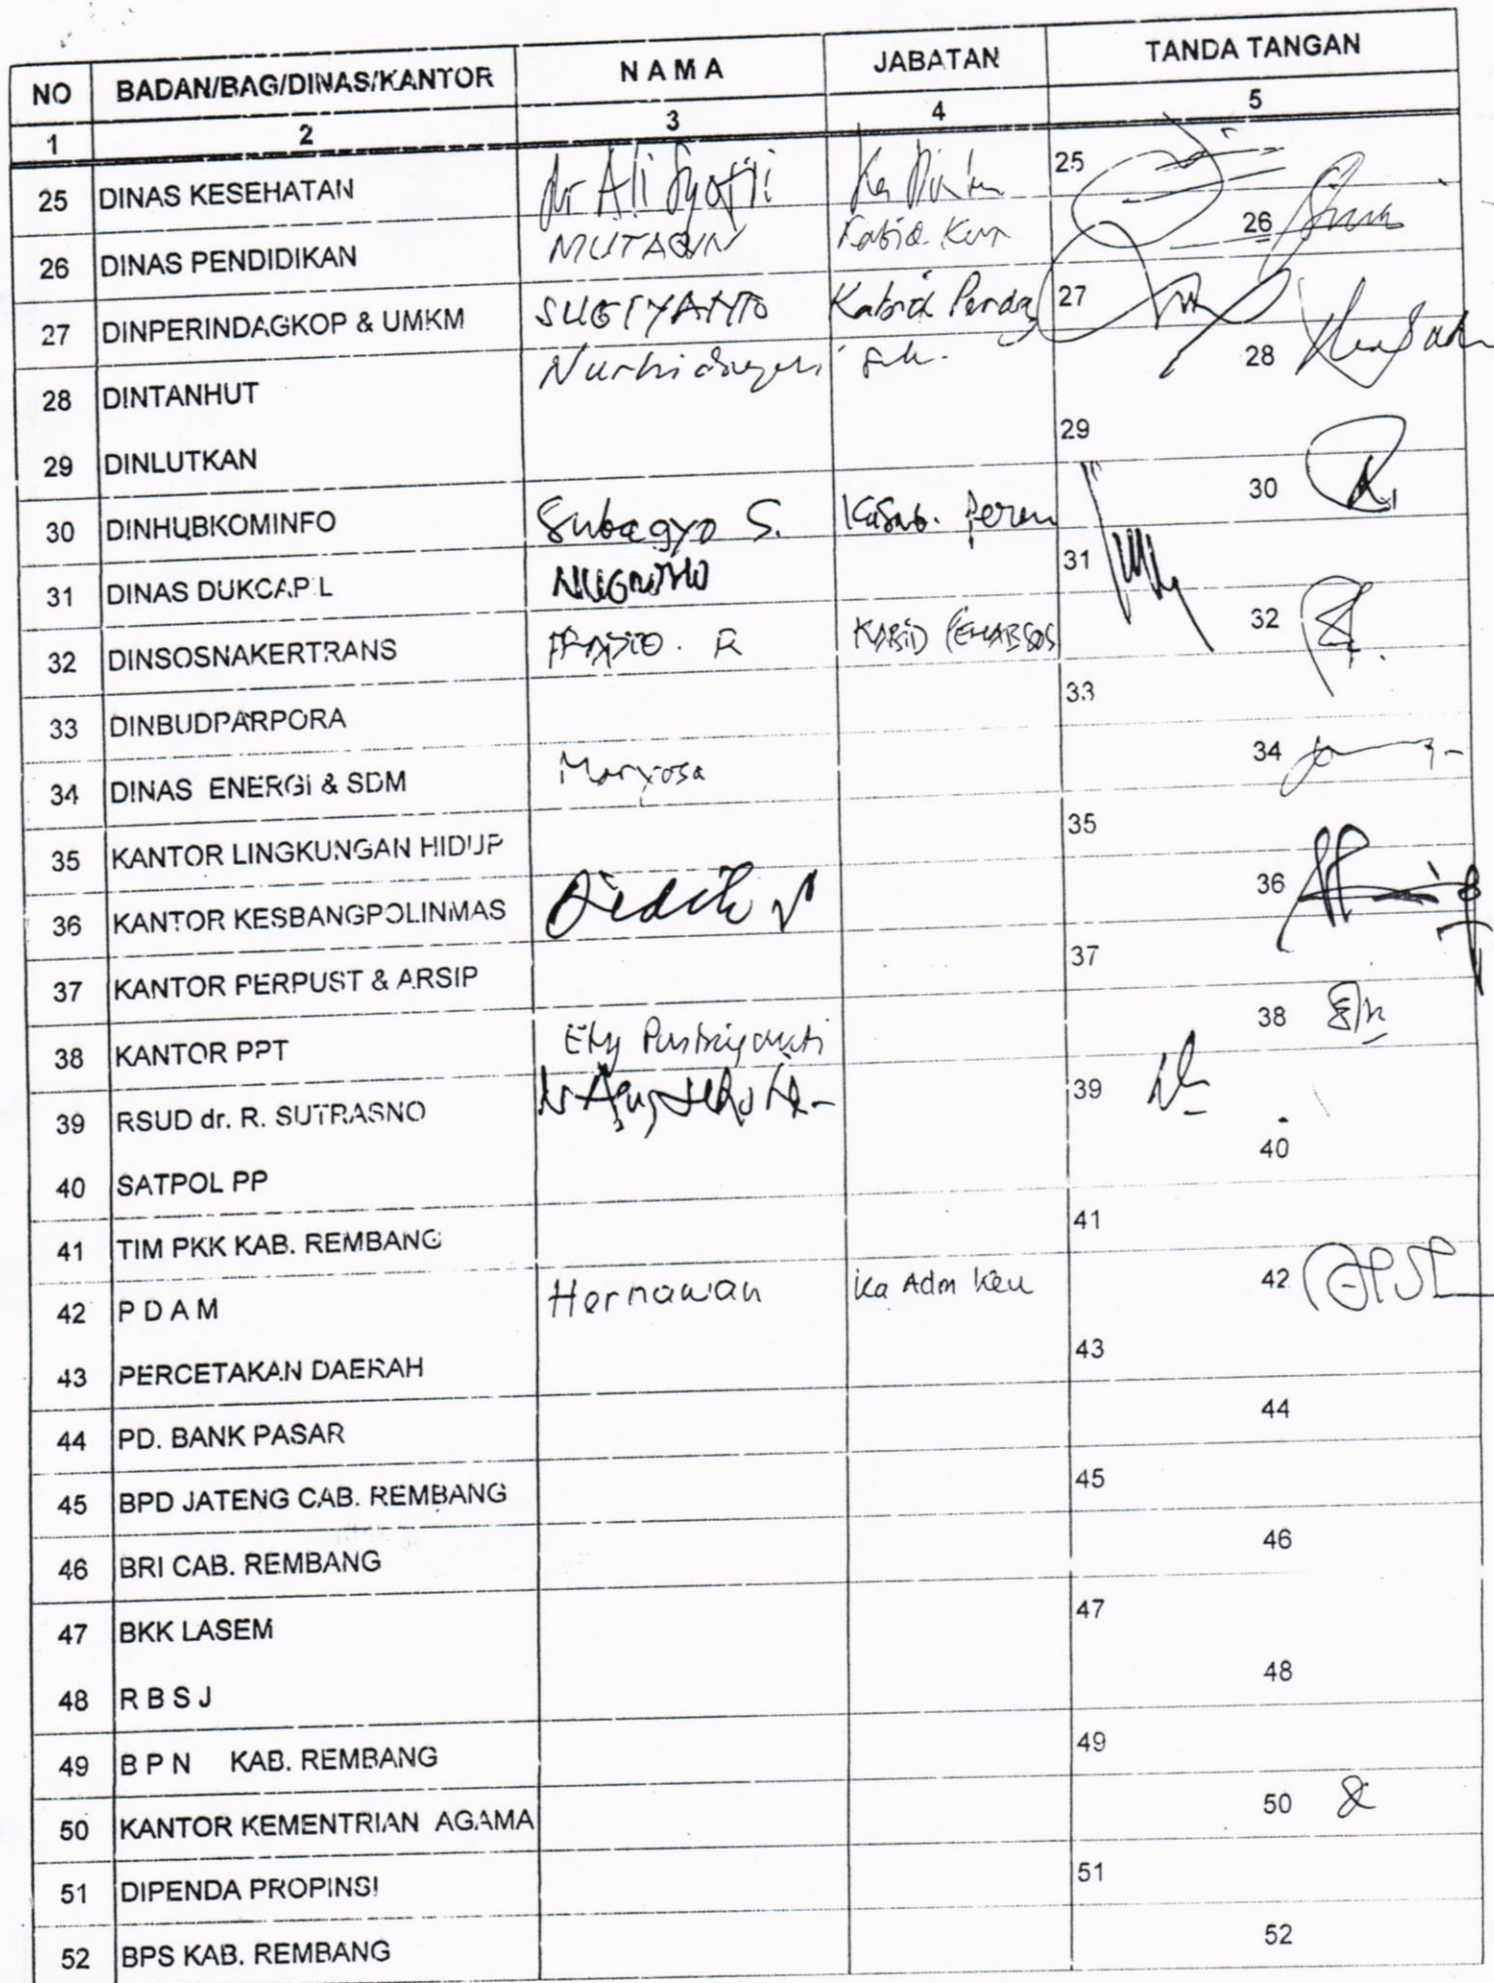 NO BADAN/BAG/DINAS/KANTOR N A M A JABATAN TANDA TANGAN
1 2 3 4 5
25 DINAS KESEHATAN dr Ali Syofii 25
26 DINAS PENDIDIKAN MUTAQIN Kabid 26
27 DINPERINDAGKOP & UMKM SUGIYANTO Kabid Perdag 27
28 DINTANHUT 28
29 DINLUTKAN 29
30 DINHUBKOMINFO Subagyo S. Kasub. Peren 30
31 DINAS DUKCAPIL NUGROHO 31
32 DINSOSNAKERTRANS R KABID 32
33 DINBUDPARPORA 33
34 DINAS ENERGI & SDM Maryosa 34
35 KANTOR LINGKUNGAN HIDUP 35
36 KANTOR KESBANGPOLINMAS 36
37 KANTOR PERPUST & ARSIP 37
38 KANTOR PPT 38
39 RSUD dr. R. SUTRASNO 39
40 SATPOL PP 40
41 TIM PKK KAB. REMBANG 41
42 P D A M Hernawan Ka Adm Keu 42
43 PERCETAKAN DAERAH 43
44 PD. BANK PASAR 44
45 BPD JATENG CAB. REMBANG 45
46 BRI CAB. REMBANG 46
47 BKK LASEM 47
48 R B S J 48
49 B P N KAB. REMBANG 49
50 KANTOR KEMENTRIAN AGAMA 50
51 DIPENDA PROPINSI 51
52 BPS KAB. REMBANG 52